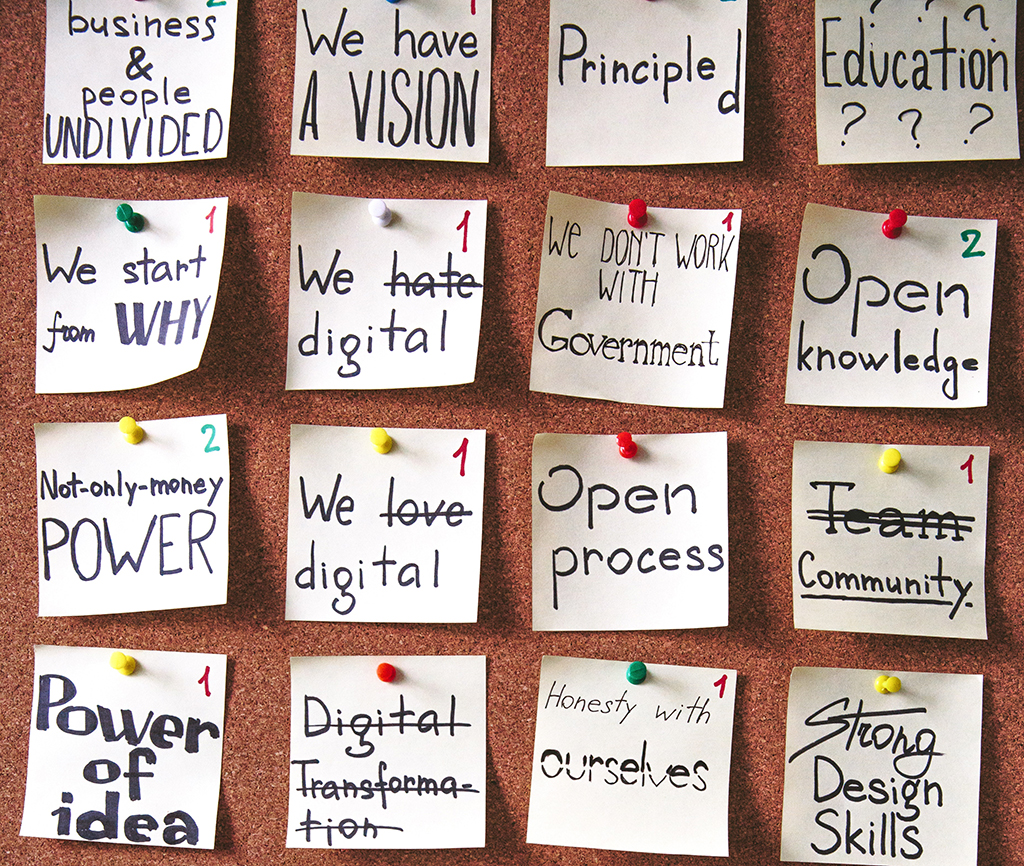 2
business
&
people
UNDIVIDED
1
We have
A VISION
2
Principle
d
? ? ?
Education
? ? ?
1
We start
from WHY
1
We hate
digital
1
WE DON'T WORK
WITH
Government
2
Open
knowledge
2
Not-only-money
POWER
1
We love
digital
Open
process
1
Team
Community.
1
Power
of
idea
Digital
Transforma-
tion
1
Honesty with
ourselves
Strong
Design
Skills